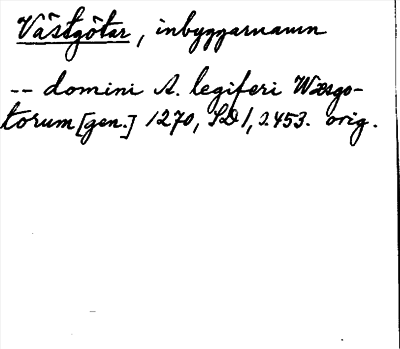 Västgötar, inbyggarnamn
-- domini A. legiferi Wæsgo-
torum [gen.] 1270, SD 1, s. 453. orig.